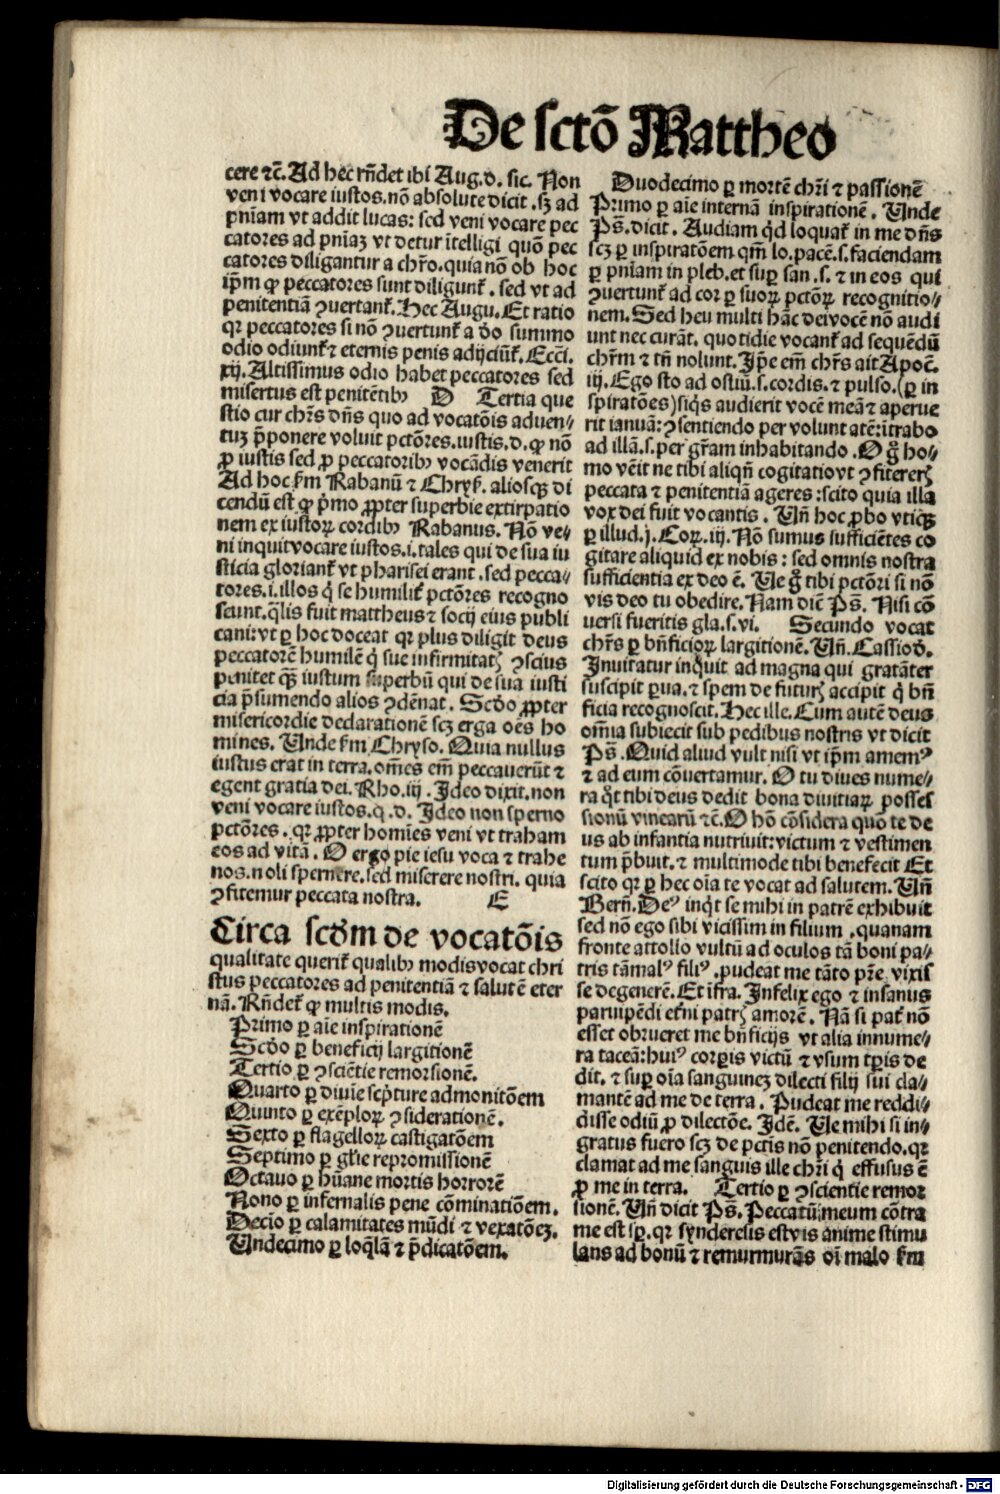 De sctō Mattheo
cere ⁊c̄. Ad hec rn̄det ibi Aug. d. sic. Non
veni vocare iustos. nō absolute dicit . sꝫ ad
pn̄iam vt addit lucas: sed veni vocare pec
catores ad pn̄iaꝫ vt detur ītelligi quō pec
catores diligantur a chr̄o. quia nō ob hoc
ip̄m ꝙ peccatores sunt diligunt᷑ . sed vt ad
penitentiā ꝯuertant᷑. Hec Augu. Et ratio
qꝛ peccatores si nō ꝯuertunt᷑ a deo summo
odio odiunt᷑ ⁊ eternis penis adijciūt᷑. Ecci.
xij. Altissimus odio habet peccatores sed
misertus est penitētibꝰ D Tertia que
stio cur chr̄s dn̄s quo ad vocatōis aduen⸗
tuꝫ p̄ponere voluit pctōres. iustis. d. ꝙ nō
ꝓ iustis sed ꝓ peccatoribꝰ vocādis venerit
Ad hoc km̄ Rabanū ⁊ Chrys. aliosqꝫ di
cendū est ꝙ p̄mo ꝓpter superbie extirpatio
nem ex iustoꝝ cordibꝰ Rabanus. Nō ve⸗
ni inquit vocare iustos. i. tales qui de sua iu
sticia gloriant᷑ vt pharisei erant . sed pecca⸗
tores. i. illos q̇ se humilit᷑ pctōres recogno
scunt. q̄lis fuit mattheus ⁊ socij eius publi
cani: vt ꝑ hoc doceat qꝛ plus diligit deus
peccatorē humilē q̇ sue infirmitatꝭ ꝯscius
penitet qꝫ iustum superbū qui de sua iusti
cia p̄sumendo alios ꝯdēnat. Scd̄o ꝓpter
misericordie declarationē scꝫ erga oēs ho
mines. Unde km̄ Chryso. Quia nullus
iustus erat in terra. om̄es em̄ peccauerūt ⁊
egent gratia dei. Rho. iij . Ideo dixit. non
veni vocare iustos. q. d. Ideo non sperno
pctōres . qꝛ ꝓpter homīes veni vt traham
eos ad vitā . O ergo pie iesu voca ⁊ trahe
nos. noli spernere. sed miserere nostri. quia
ꝯfitemur peccata nostra. E
Circa scd̄m de vocatōis
qualitate querit᷑ qualibꝰ modis vocat chri
stus peccatores ad penitentiā ⁊ salutē eter
nā. Rn̄det᷑ ꝙ multis modis.
Primo ꝑ aīe inspirationē
Scd̄o ꝑ beneficij largitionē
Tertio ꝑ ꝯsciētie remorsionē.
Quarto ꝑ diuīe scp̄ture admonitōem
Quinto ꝑ exēploꝝ ꝯsiderationē.
Sexto ꝑ flagelloꝝ castigatōem
Septimo ꝑ gl̄ie repromissionē
Octauo ꝑ hūane mortis horrorē
Nono ꝑ infernalis pene cōminatiōem.
Decīo ꝑ calamitates mūdi ⁊ vexatōeꝫ.
Undecimo ꝑ loq̄lā ⁊ p̄dicatōem.
Duodecimo ꝑ mortē chr̄i ⁊ passionē
Primo ꝑ aīe internā inspirationē. Unde
Ps̄. dicit. Audiam qḋ loquat᷑ in me dn̄s
scꝫ ꝑ inspiratōem qm̄ lo. pacē. s. faciendam
ꝑ pn̄iam in pleb. et suꝑ san . s. ⁊ in eos qui
ꝯuertunt᷑ ad cor ꝑ suoꝝ pctōꝝ recognitio⸗
nem. Sed heu multi hāc dei vocē nō audi
unt nec curāt. quotidie vocant᷑ ad sequēdū
chr̄m ⁊ tn̄ nolunt. Ip̄e em̄ chr̄s ait Apoc̄.
iij. Ego sto ad ostiū. s. cordis. ⁊ pulso. (ꝑ in
spiratōes) siq̇s audierit vocē meā ⁊ aperue
rit ianuā: ꝯsentiendo per voluntatē: ītrabo
ad illā. s. per gr̄am inhabitando . O g̊ ho⸗
mo vēit ne tibi aliqn̄ cogitatio vt ꝯfitererꝭ
peccata ⁊ penitentiā ageres : scito quia illa
vox dei fuit vocantis . Un̄ hoc ꝓbo vtiqꝫ
ꝑ illud. j. Coꝝ. iij. Nō sumus sufficiētes co
gitare aliquid ex nobis : sed omnis nostra
sufficientia ex deo ē. Ue g̊ tibi pctōri si nō
vis deo tu obedire. Nam dic̄ Ps̄. Nisi cō
uersi fueritis gla. s. vi. Secundo vocat
chr̄s ꝑ bn̄ficioꝝ largitionē. Un̄. Cassiod.
Inuitatur inquit ad magna qui gratāter
suscipit ꝑua. ⁊ spem de futurꝭ accipit q̇ bn̄
ficia recognoscit. Hec ille. Cum autē deus
om̄ia subiecit sub pedibus nostris vt dicit
Ps̄. Quid aliud vult nisi vt ip̄m amemꝰ
⁊ ad eum cōuertamur. O tu diues nume⸗
ra q̊t tibi deus dedit bona diuitiaꝝ posses
sionū vinearū ⁊c̄. O hō cōsidera quō te de
us ab infantia nutriuit: victum ⁊ vestimen
tum p̄buit. ⁊ multimode tibi benefecit Et
scito qꝛ ꝑ hec oīa te vocat ad salutem. Un̄
Bern̄. Deꝰ inq̇t se mihi in patrē exhibuit
sed nō ego sibi vicissim in filium . quanam
fronte attollo vultū ad oculos tā boni pa⸗
tris tā malꝰ filiꝰ . pudeat me tāto pr̄e. vixis
se degenerē. Et īfra. Infelix ego ⁊ insanus
paruipēdi et̄ni patrꝭ amorē . Nā si pat᷑ nō
esset obrueret me bn̄ficijs vt alia innume⸗
ra taceā: huiꝰ corꝑis victū ⁊ vsum tꝑis de
dit. ⁊ suꝑ oīa sanguineꝫ dilecti filij sui cla⸗
mantē ad me de terra . Pudeat me reddi⸗
disse odiū ꝓ dilectōe. Idē. Ue mihi si in⸗
gratus fuero scꝫ de pctis nō penitendo. qꝛ
clamat ad me sanguis ille chr̄i q̇ effusus ē
ꝓ me in terra. Tertio ꝑ ꝯscientie remor
sionē. Un̄ dicit Ps̄. Peccatū meum cōtra
me est sꝑ. qꝛ synderesis est vis anime stimu
lans ad bonū ⁊ remurmurās oī malo km̄
Digitalisierung gefördert durch die Deutsche Forschungsgemeinschaft - DFG